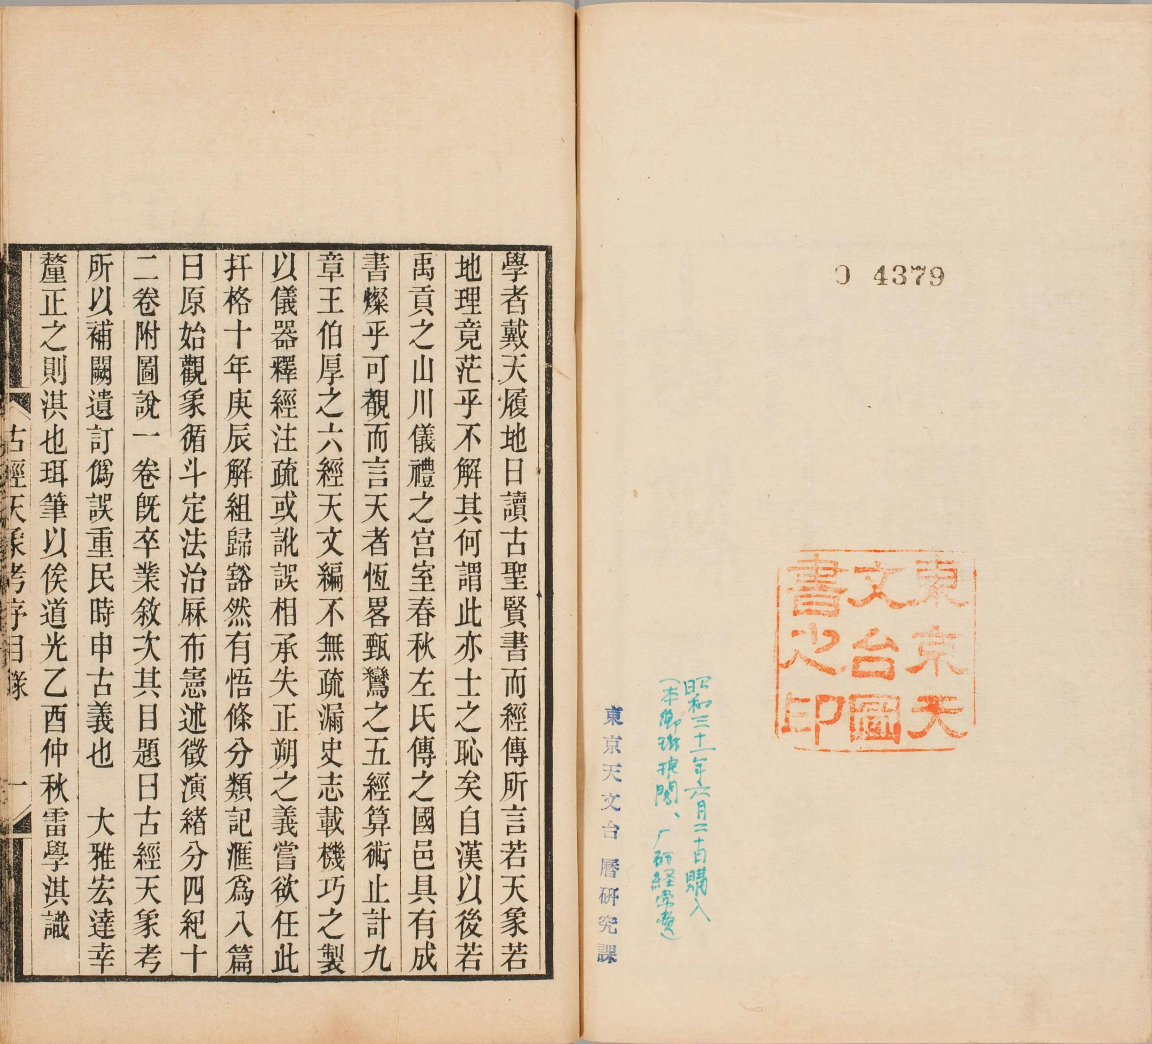 O 4379
東京天
文台圖
書之印
昭和三十一年六月二十日購入
(本郷琳琅閣、 研経常費)
東京天文台 曆研究課
學者戴天履地日讀古聖賢書而經傳所言若天象若
地理竟茫乎不解其何謂此亦士之恥矣自漢以後若
禹貢之山川儀禮之宮室春秋左氏傳之國邑具有成
書燦乎可覩而言天者恆畧甄鸞之五經算術止計九
章王伯厚之六經天文編不無疏漏史志載機巧之製
以儀器釋經注疏或訛誤相承失正朔之義嘗欲任此
扞格十年庚辰解組歸豁然有悟條分類記滙爲八篇
曰原始觀象循斗定法治厤布憲述徵演緖分四紀十
二卷附圖說一卷旣卒業敘次其目題曰古經天象考
所以補闕遺訂僞誤重民時申古義也　大雅宏達幸
釐正之則淇也珥筆以俟道光乙酉仲秋雷學淇識
古經天象考序目錄 一